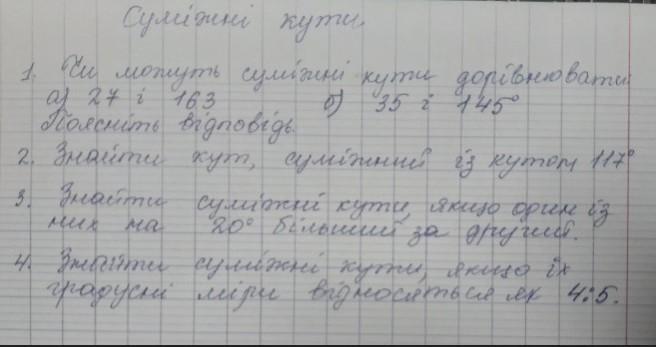 Суміжні кути.
1. Чи можуть суміжні кути дорівнювати
а) 27 і 163 б) 35 і 145°
Поясніть відповідь.
2. Знайти кут, суміжний із кутом 117°
3. Знайти суміжні кути, якщо один із
них на 20° більший за другий.
4. Знайти суміжні кути, якщо їх
градусні міри відносяться як 4:5.